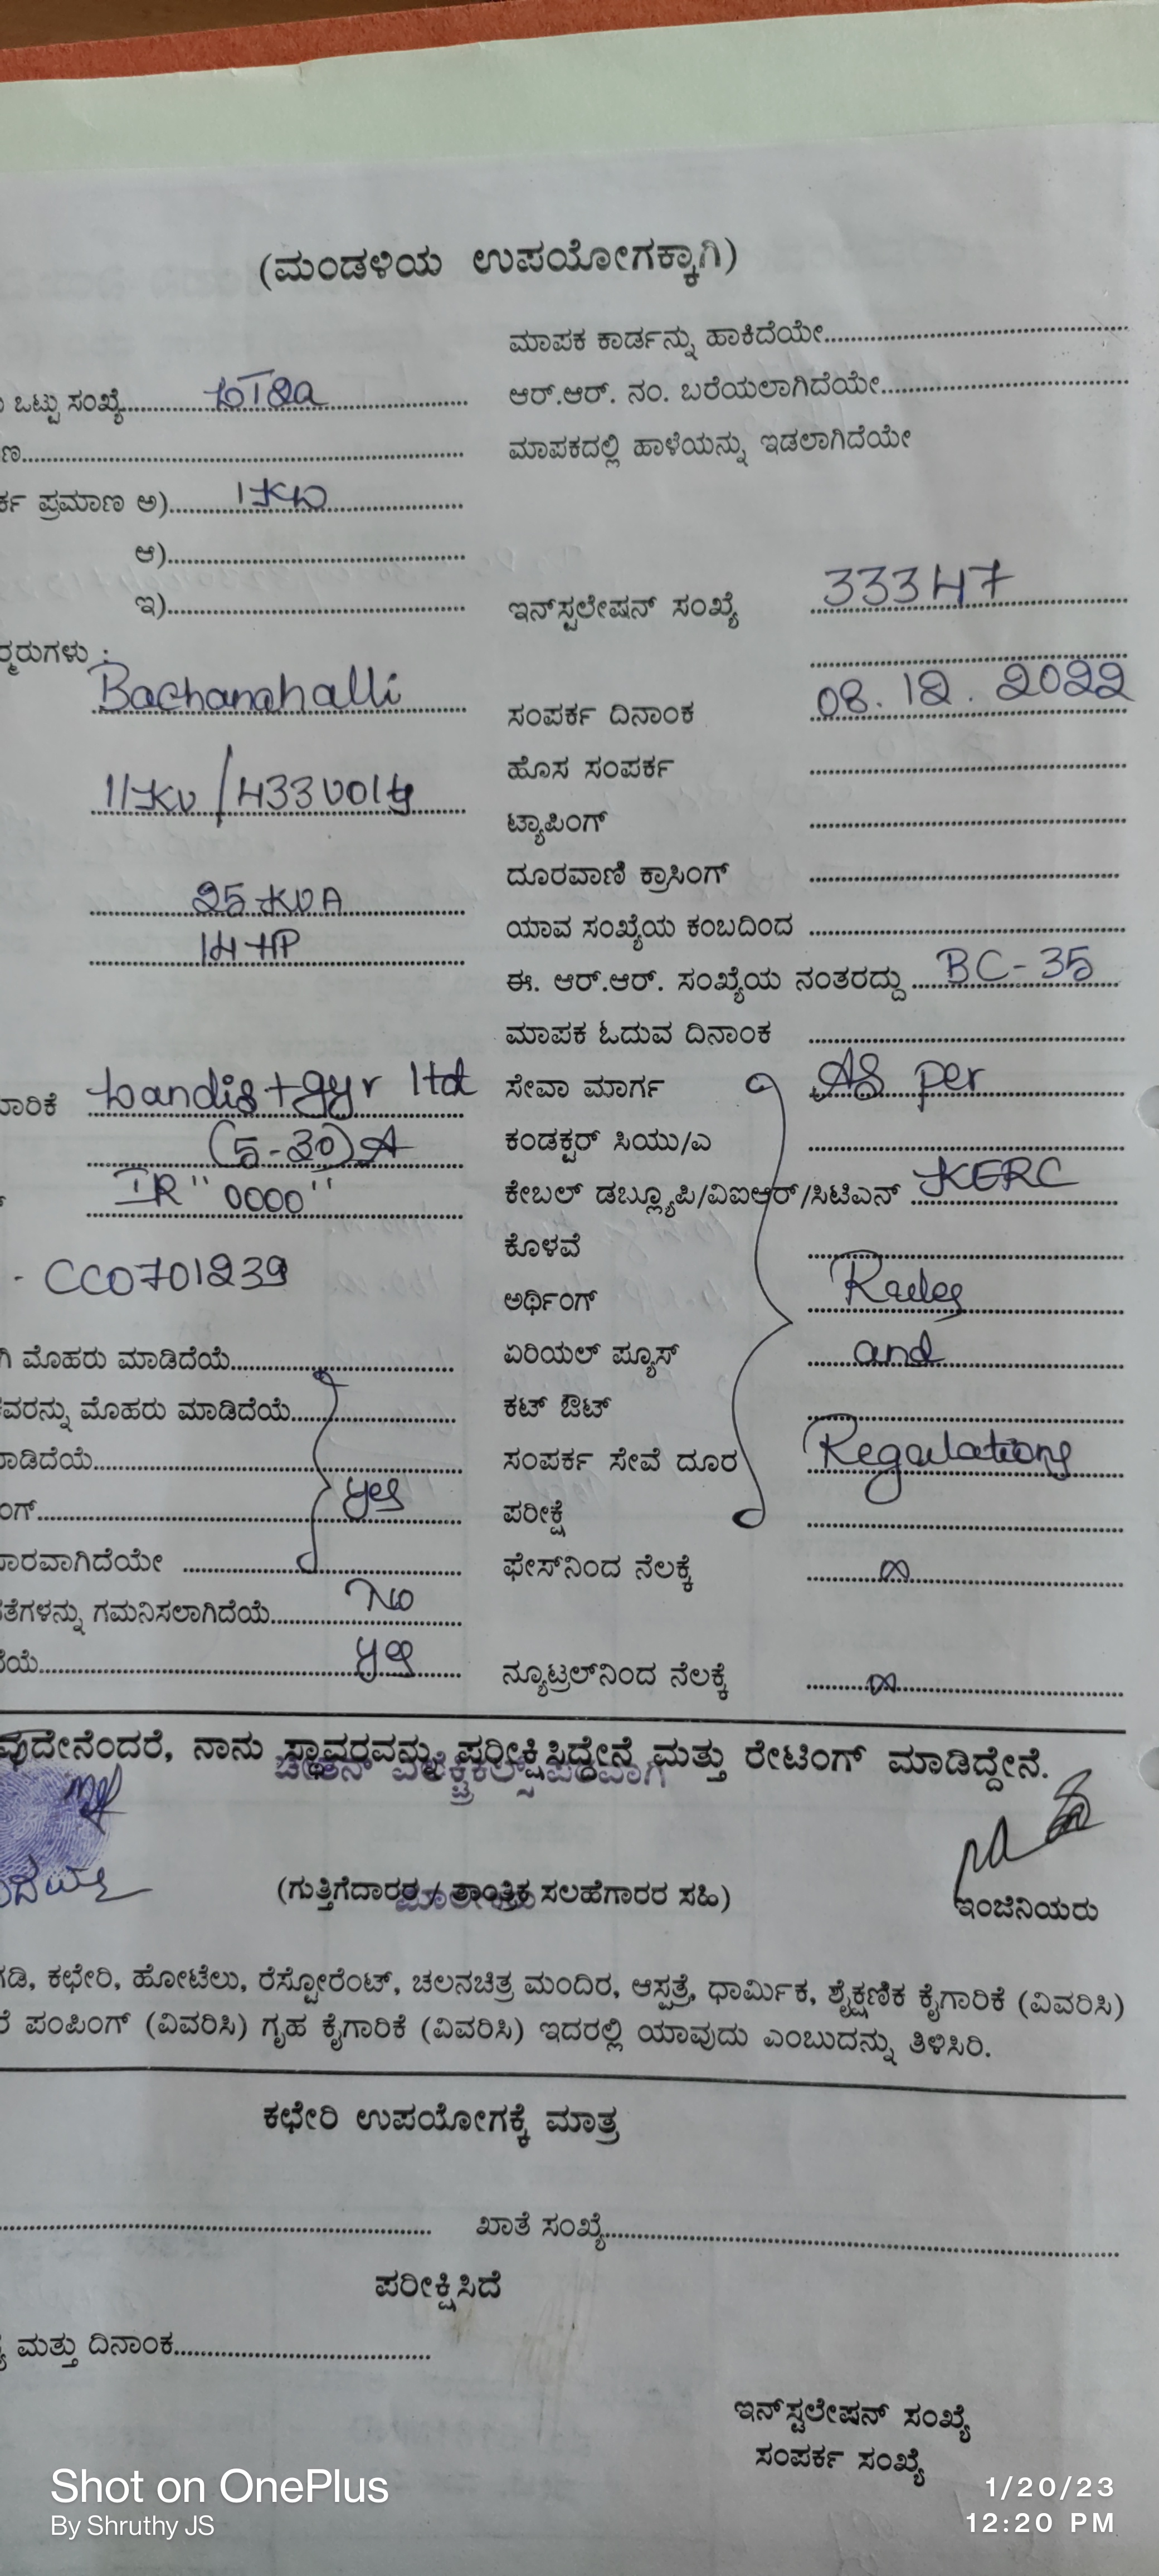 (ಮಂಡಳಿಯ ಉಪಯೋಗಕ್ಕಾಗಿ)
ಮಾಪಕ ಕಾರ್ಡನ್ನು ಹಾಕಿದೆಯೇ
ಒಟ್ಟು ಸಂಖ್ಯೆ
ಆರ್.ಆರ್. ನಂ. ಬರೆಯಲಾಗಿದೆಯೇ
ಮಾಪಕದಲ್ಲಿ ಹಾಳೆಯನ್ನು ಇಡಲಾಗಿದೆಯೇ
ಪ್ರಮಾಣ ಅ) 1KW
ಆ)
ಇ)
ಇನ್‌ಸ್ಟಲೇಷನ್ ಸಂಖ್ಯೆ 33347
Bachanahalli
ಸಂಪರ್ಕ ದಿನಾಂಕ 08.12.2022
ಹೊಸ ಸಂಪರ್ಕ
11KV/433Volts
ಟ್ಯಾಪಿಂಗ್
ದೂರವಾಣಿ ಕ್ರಾಸಿಂಗ್
25 KVA
ಯಾವ ಸಂಖ್ಯೆಯ ಕಂಬದಿಂದ
14 HP
ಈ. ಆರ್.ಆರ್. ಸಂಖ್ಯೆಯ ನಂತರದ್ದು BC-35
ಮಾಪಕ ಓದುವ ದಿನಾಂಕ
Landis + gyr ltd
ಸೇವಾ ಮಾರ್ಗ As per
(5-30)A
ಕಂಡಕ್ಟರ್ ಸಿಯು/ಎ
IR "0000"
ಕೇಬಲ್ ಡಬ್ಲ್ಯೂಪಿ/ವಿಐಆರ್/ಸಿಟಿಎನ್ KERC
ಕೊಳವೆ
- CC0701239
ಅರ್ಥಿಂಗ್ Rules
ಮೊಹರು ಮಾಡಿದೆಯೆ
ಏರಿಯಲ್ ಫ್ಯೂಸ್ and
ಮೊಹರು ಮಾಡಿದೆಯೆ
ಕಟ್ ಔಟ್
ಸಂಪರ್ಕ ಸೇವೆ ದೂರ Regulations
yes
ಪರೀಕ್ಷೆ
ಫೇಸ್‌ನಿಂದ ನೆಲಕ್ಕೆ ∞
ಗಮನಿಸಲಾಗಿದೆಯೆ No
yes
ನ್ಯೂಟ್ರಲ್‌ನಿಂದ ನೆಲಕ್ಕೆ ∞
ನಾನು ಸ್ಥಾವರವನ್ನು ಪರೀಕ್ಷಿಸಿದ್ದೇನೆ ಮತ್ತು ರೇಟಿಂಗ್ ಮಾಡಿದ್ದೇನೆ.
(ಗುತ್ತಿಗೆದಾರರ / ತಾಂತ್ರಿಕ ಸಲಹೆಗಾರರ ಸಹಿ)
ಇಂಜಿನಿಯರು
ಕಛೇರಿ, ಹೋಟೆಲು, ರೆಸ್ಟೋರೆಂಟ್, ಚಲನಚಿತ್ರ ಮಂದಿರ, ಆಸ್ಪತ್ರೆ, ಧಾರ್ಮಿಕ, ಶೈಕ್ಷಣಿಕ ಕೈಗಾರಿಕೆ (ವಿವರಿಸಿ)
ಪಂಪಿಂಗ್ (ವಿವರಿಸಿ) ಗೃಹ ಕೈಗಾರಿಕೆ (ವಿವರಿಸಿ) ಇದರಲ್ಲಿ ಯಾವುದು ಎಂಬುದನ್ನು ತಿಳಿಸಿರಿ.
ಕಛೇರಿ ಉಪಯೋಗಕ್ಕೆ ಮಾತ್ರ
ಖಾತೆ ಸಂಖ್ಯೆ
ಪರೀಕ್ಷಿಸಿದೆ
ಮತ್ತು ದಿನಾಂಕ
ಇನ್‌ಸ್ಟಲೇಷನ್ ಸಂಖ್ಯೆ
ಸಂಪರ್ಕ ಸಂಖ್ಯೆ
Shot on OnePlus
By Shruthy JS
1/20/23
12:20 PM